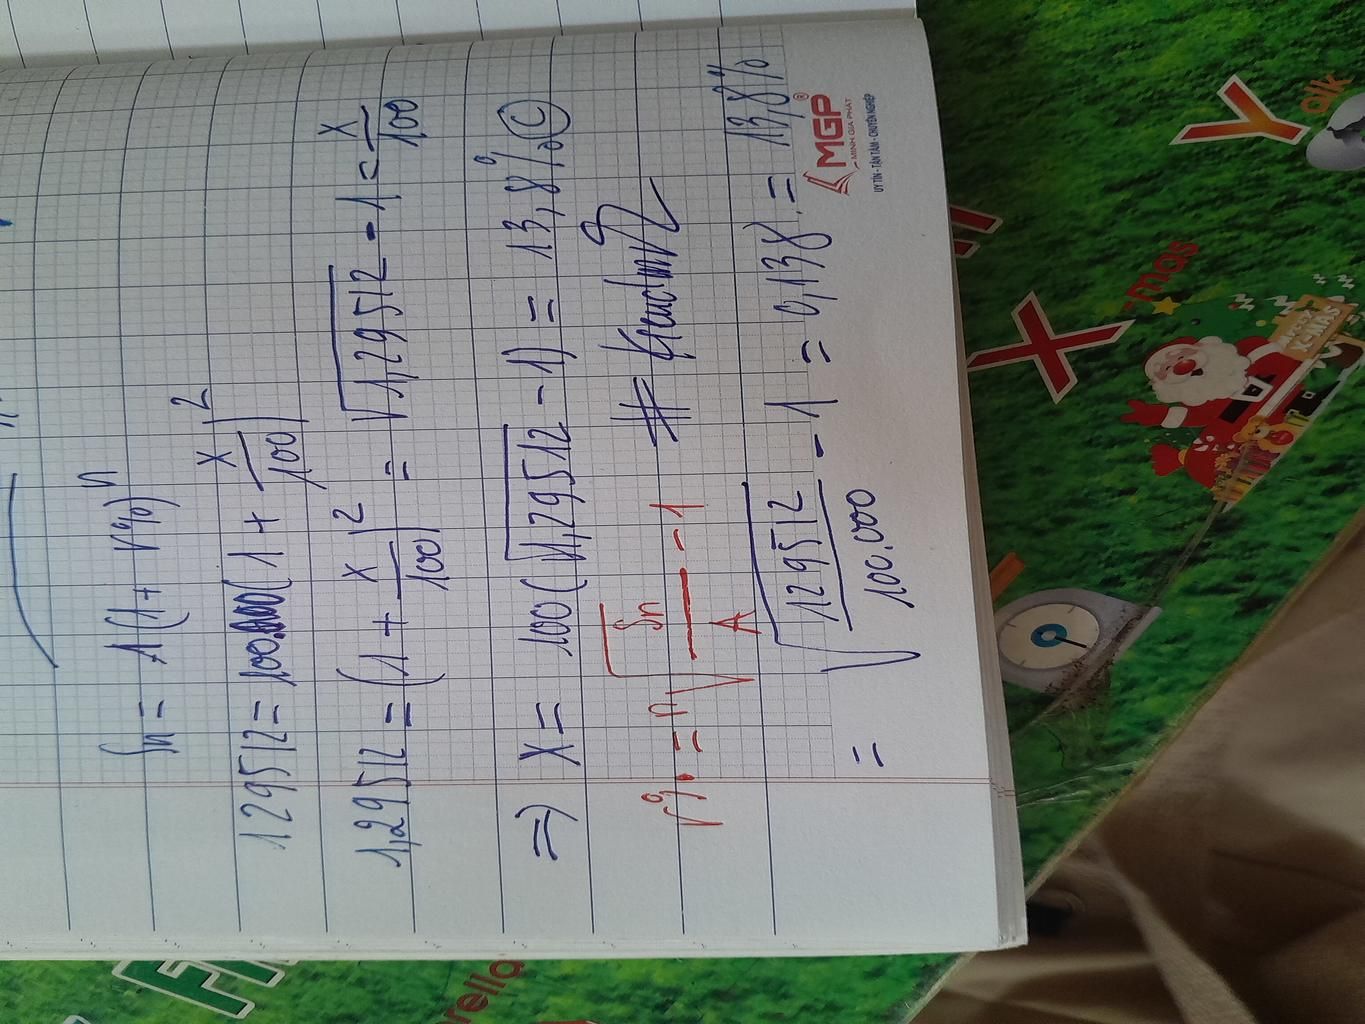 Sn = A(1 + r%)^n
129512 = 100.000(1 + x/100)^2
1,29512 = (1 + x/100)^2 = √1,29512 - 1 = x/100
=> x = 100(√1,29512 - 1) = 13,8% Ⓒ
r% = n√(Sn/A) - 1 #
= √(129512/100.000) - 1 = 0,138 = 13,8%
MGP®
MINH GIA PHÁT
UY TÍN - TẬN TÂM - CHUYÊN NGHIỆP
X-mas
X-MAS
Y
alk